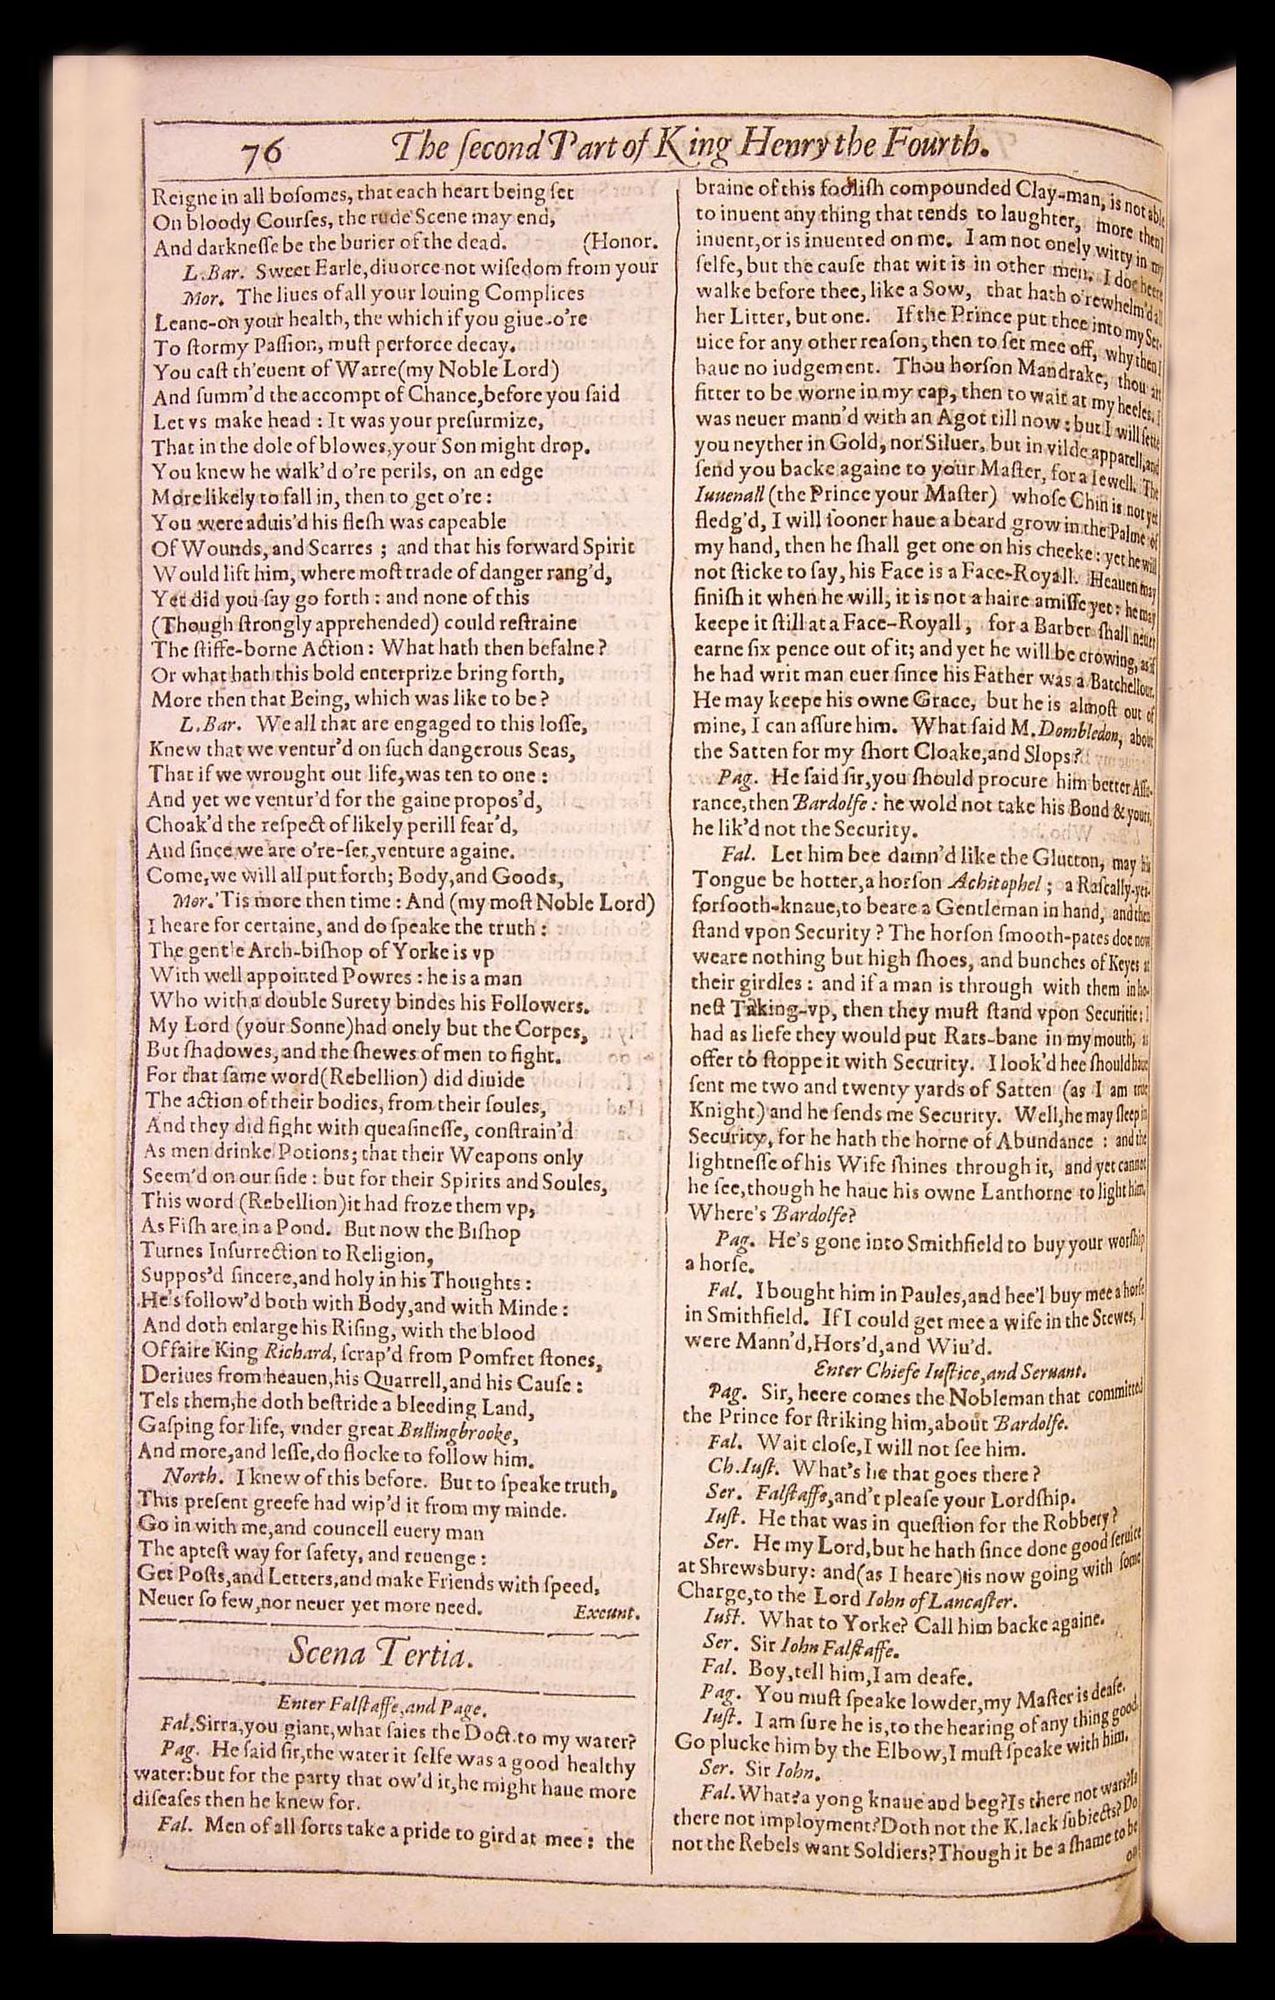 76
The ſecond Part of King Henry the Fourth.
Reigne in all boſomes, that each heart being ſet
On bloody Courſes, the rude Scene may end,
And darkneſſe be the burier of the dead. (Honor.
L.Bar. Sweet Earle, diuorce not wiſedom from your
Mor. The liues of all your louing Complices
Leane-on your health, the which if you giue-o're
To ſtormy Paſſion, muſt perforce decay.
You caſt th'euent of Warre(my Noble Lord)
And ſumm'd the accompt of Chance, before you ſaid
Let vs make head : It was your preſurmize,
That in the dole of blowes, your Son might drop.
You knew he walk'd o're perils, on an edge
More likely to fall in, then to get o're :
You were aduis'd his fleſh was capeable
Of Wounds, and Scarres ; and that his forward Spirit
Would lift him, where moſt trade of danger rang'd,
Yet did you ſay go forth : and none of this
(Though ſtrongly apprehended) could reſtraine
The ſtiffe-borne Action : What hath then befalne ?
Or what hath this bold enterprize bring forth,
More then that Being, which was like to be ?
L.Bar. We all that are engaged to this loſſe,
Knew that we ventur'd on ſuch dangerous Seas,
That if we wrought out life, was ten to one :
And yet we ventur'd for the gaine propos'd,
Choak'd the reſpect of likely perill fear'd,
And ſince we are o're-ſet, venture againe.
Come, we will all put forth; Body, and Goods,
Mor. 'Tis more then time : And (my moſt Noble Lord)
I heare for certaine, and do ſpeake the truth :
The gentle Arch-biſhop of Yorke is vp
With well appointed Powres : he is a man
Who with a double Surety bindes his Followers.
My Lord (your Sonne)had onely but the Corpes,
But ſhadowes, and the ſhewes of men to fight.
For that ſame word(Rebellion) did diuide
The action of their bodies, from their ſoules,
And they did fight with queaſineſſe, conſtrain'd
As men drinke Potions; that their Weapons only
Seem'd on our ſide : but for their Spirits and Soules,
This word (Rebellion)it had froze them vp,
As Fiſh are in a Pond. But now the Biſhop
Turnes Inſurrection to Religion,
Suppos'd ſincere, and holy in his Thoughts :
He's follow'd both with Body, and with Minde :
And doth enlarge his Riſing, with the blood
Of faire King Richard, ſcrap'd from Pomfret ſtones,
Deriues from heauen, his Quarrell, and his Cauſe :
Tels them, he doth beſtride a bleeding Land,
Gaſping for life, vnder great Bullingbrooke,
And more, and leſſe, do flocke to follow him.
North. I knew of this before. But to ſpeake truth,
This preſent greefe had wip'd it from my minde.
Go in with me, and councell euery man
The apteſt way for ſafety, and reuenge :
Get Poſts, and Letters, and make Friends with ſpeed,
Neuer ſo few, nor neuer yet more need. Exeunt.
Scena Tertia.
Enter Falſtaffe, and Page.
Fal. Sirra, you giant, what ſaies the Doct. to my water?
Pag. He ſaid ſir, the water it ſelfe was a good healthy
water: but for the party that ow'd it, he might haue more
diſeaſes then he knew for.
Fal. Men of all ſorts take a pride to gird at mee : the
braine of this fooliſh compounded Clay-man, is not able
to inuent any thing that tends to laughter, more then I
inuent, or is inuented on me. I am not onely witty in my
ſelfe, but the cauſe that wit is in other men. I doe heere
walke before thee, like a Sow, that hath o'rewhelm'd all
her Litter, but one. If the Prince put thee into my Ser-
uice for any other reaſon, then to ſet mee off, why then I
haue no iudgement. Thou horſon Mandrake, thou art
fitter to be worne in my cap, then to wait at my heeles. I
was neuer mann'd with an Agot till now : but I will ſette
you neyther in Gold, nor Siluer, but in vilde apparell, and
ſend you backe againe to your Maſter, for a Iewell. The
Iuuenall (the Prince your Maſter) whoſe Chin is not yet
fledg'd, I will ſooner haue a beard grow in the Palme of
my hand, then he ſhall get one on his cheeke : yet he will
not ſticke to ſay, his Face is a Face-Royall. Heauen may
finiſh it when he will, it is not a haire amiſſe yet : he may
keepe it ſtill at a Face-Royall, for a Barber ſhall neuer
earne ſix pence out of it; and yet he will be crowing, as if
he had writ man euer ſince his Father was a Batchellour.
He may keepe his owne Grace, but he is almoſt out of
mine, I can aſſure him. What ſaid M. Dombledon, about
the Satten for my ſhort Cloake, and Slops?
Pag. He ſaid ſir, you ſhould procure him better Aſſu-
rance, then Bardolfe : he wold not take his Bond & yours,
he lik'd not the Security.
Fal. Let him bee damn'd like the Glutton, may his
Tongue be hotter, a horſon Achitophel ; a Raſcally-yea-
forſooth-knaue, to beare a Gentleman in hand, and then
ſtand vpon Security ? The horſon ſmooth-pates doe now
weare nothing but high ſhoes, and bunches of Keyes at
their girdles : and if a man is through with them in ho-
neſt Taking-vp, then they muſt ſtand vpon Securitie : I
had as liefe they would put Rats-bane in my mouth, as
offer to ſtoppe it with Security. I look'd hee ſhould haue
ſent me two and twenty yards of Satten (as I am true
Knight) and he ſends me Security. Well, he may ſleep in
Security, for he hath the horne of Abundance : and the
lightneſſe of his Wife ſhines through it, and yet cannot
he ſee, though he haue his owne Lanthorne to light him.
Where's Bardolfe?
Pag. He's gone into Smithfield to buy your worſhip
a horſe.
Fal. I bought him in Paules, and hee'l buy mee a horſe
in Smithfield. If I could get mee a wife in the Stewes, I
were Mann'd, Hors'd, and Wiu'd.
Enter Chiefe Iuſtice, and Seruant.
Pag. Sir, heere comes the Nobleman that committed
the Prince for ſtriking him, about Bardolfe.
Fal. Wait cloſe, I will not ſee him.
Ch.Iuſt. What's he that goes there ?
Ser. Falſtaffe, and't pleaſe your Lordſhip.
Iuſt. He that was in queſtion for the Robbery ?
Ser. He my Lord, but he hath ſince done good ſeruice
at Shrewsbury: and(as I heare)is now going with ſome
Charge, to the Lord Iohn of Lancaſter.
Iuſt. What to Yorke? Call him backe againe.
Ser. Sir Iohn Falſtaffe.
Fal. Boy, tell him, I am deafe.
Pag. You muſt ſpeake lowder, my Maſter is deafe.
Iuſt. I am ſure he is, to the hearing of any thing good.
Go plucke him by the Elbow, I muſt ſpeake with him.
Ser. Sir Iohn.
Fal. What? a yong knaue and beg? Is there not wars? Is
there not imployment? Doth not the K. lack ſubiects? Do
not the Rebels want Soldiers? Though it be a ſhame to be
on